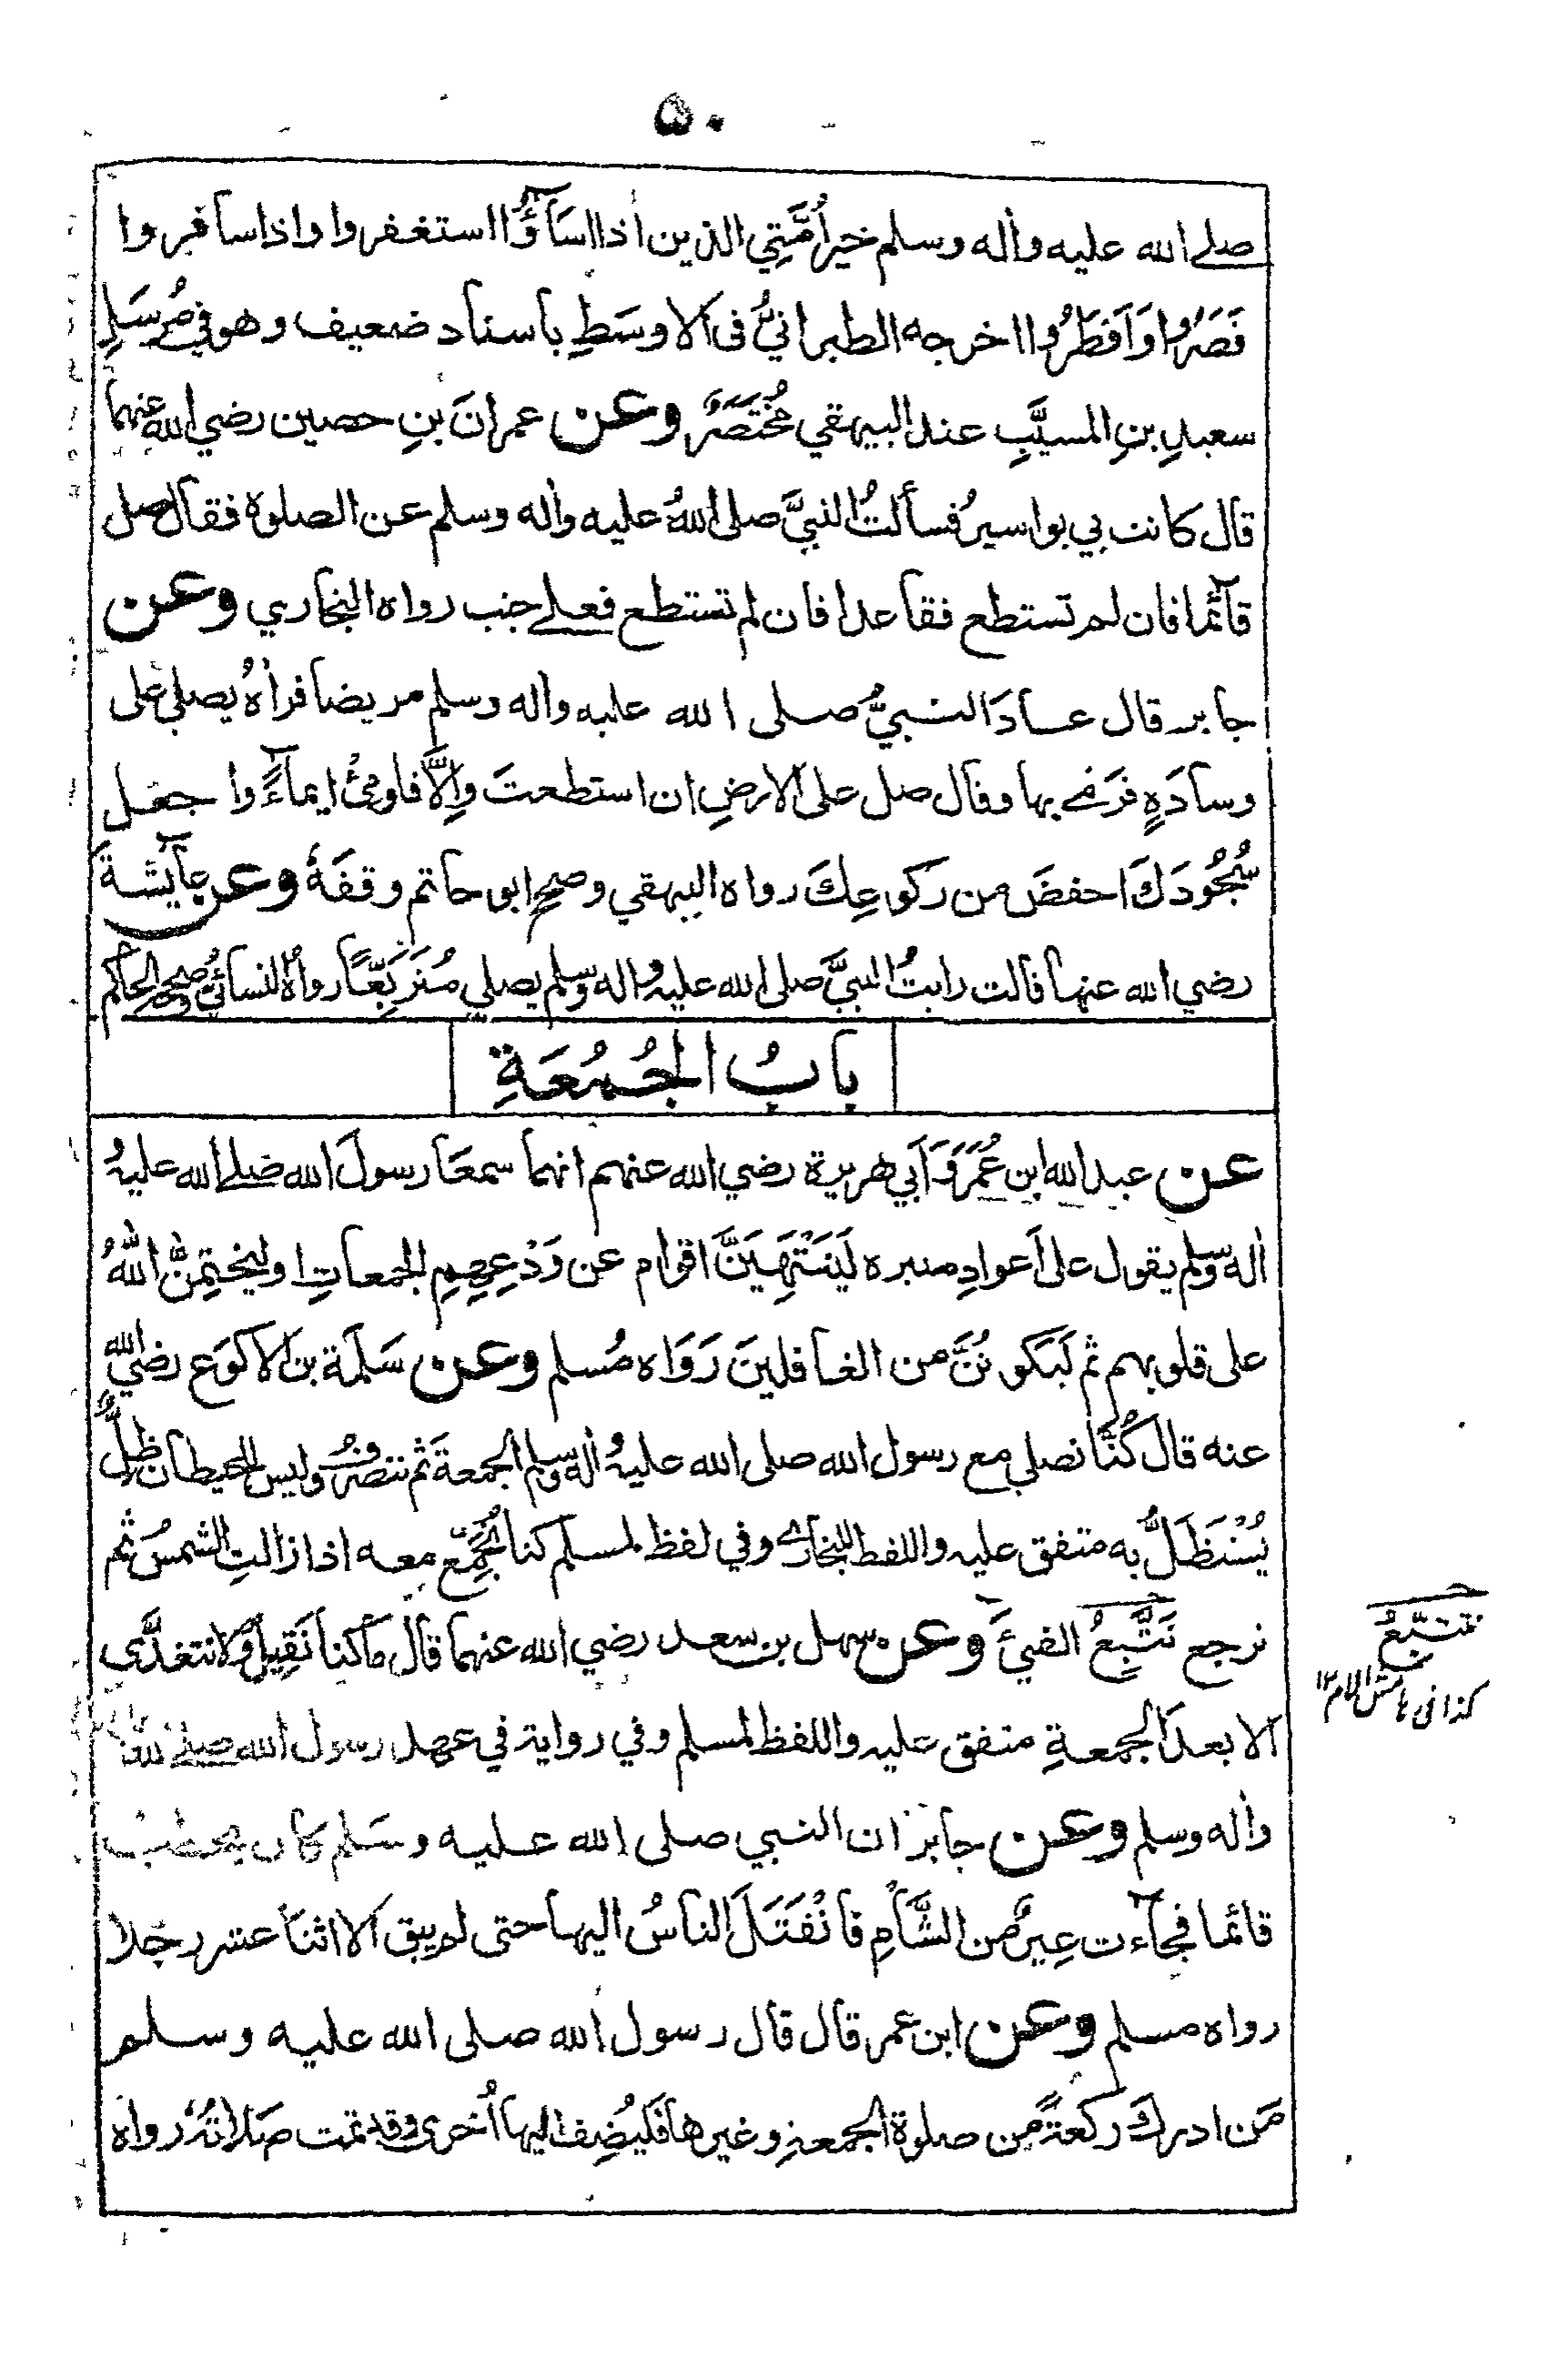 ۵۰
صلے الله عليه واٰله وسلم خيرُ اُمَّتِي الذين اذا اسَآؤُا استغفروا واذا سافروا
قَصَرُوا وَاَفطَرُوا اخرجه الطبرانيُّ فى الاوسَطِ باسناد ضعيف وهو في مُرسَلِ
سعيدِ بنِ المسيَّبِ عند البيهقي مُخْتَصَرٌ وعن عمرانَ بنِ حصين رضي الله عنهما
قال كانت بي بواسيرُ فسألتُ النبيَّ صلى اللهُ عليه واٰله وسلم عن الصلوة فقال صل
قآئما فان لم تستطع فقاعدا فان لم تستطع فعلے جنب رواه البخاري وعن
جابر قال عادَ النبيُّ صلى الله عليه واٰله وسلم مريضا فراٰهُ يصلي على
وسادَةٍ فَرَمٰے بها وقال صل على الارضِ ان استطعتَ وَاِلَّا فاومِئُ ايمآءً واجعل
سُجُودَكَ احفضَ من ركوعِكَ رواه البيهقي وصحح ابو حاتم وقفَهٗ وعن عآيشةَ
رضي الله عنها قالت رايتُ النبيَّ صلى الله عليه واٰله وسلم يصلي مُتَرَبِّعًا رواهُ النسائيُّ وصححه الحاكم
بابُ الجُمُعَةِ
عن عبد الله ابن عُمَرَ وَاَبي هريرة رضي الله عنهم انهما سمعَا رسولَ الله صلے الله عليه و
اٰله وسلم يقول على اَعوادِ منبره لَيَنْتَهِيَنَّ اقوام عن وَدْعِهِمِ الجمعاتِ او ليختِمنَّ اللّٰهُ
على قلوبهم ثم لَيَكونُنَّ من الغافلينَ رَوَاه مُسلم وعن سَلَمَة بن الاكوَع رضي الله
عنه قال كُنَّا نصلي مع رسول الله صلى الله عليه و اٰله وسلم الجمعةَ ثم ننصرفُ وليس للحيطان ظِلٌّ
يُسْتَظَلُّ به متفق عليه واللفظ للبخارے وفي لفظ لمسلم كنا نُجَمِّع معه اذا زالتِ الشمسُ ثم
نرجع نَتَّبِعُ الفيئَ وعن سهل بن سعد رضي الله عنهما قال ما كنا نَقِيلُ ولا نتغدّٰى
الا بعدَ الجمعةِ متفق عليه واللفظ لمسلم وفي رواية في عهد رسول الله صلے الله عليه
واٰله وسلم وعن جابر ان النبي صلى الله عليه وسلم كان يخطبُ
قائما فجآءت عِيرٌ من الشَّأمِ فانْفَتَلَ الناسُ اليها حتى لم يبق الا اثنا عشر رجلا
رواه مسلم وعن ابن عمر قال قال رسول الله صلى الله عليه وسلم
مَن ادرك ركعةً من صلوة الجمعةِ وغيرها فَليُضِف اليها اُخرى وقد تمت صَلاتُهٗ رواه
نتتبّعُ
كذا فى هامش الام ۱۲